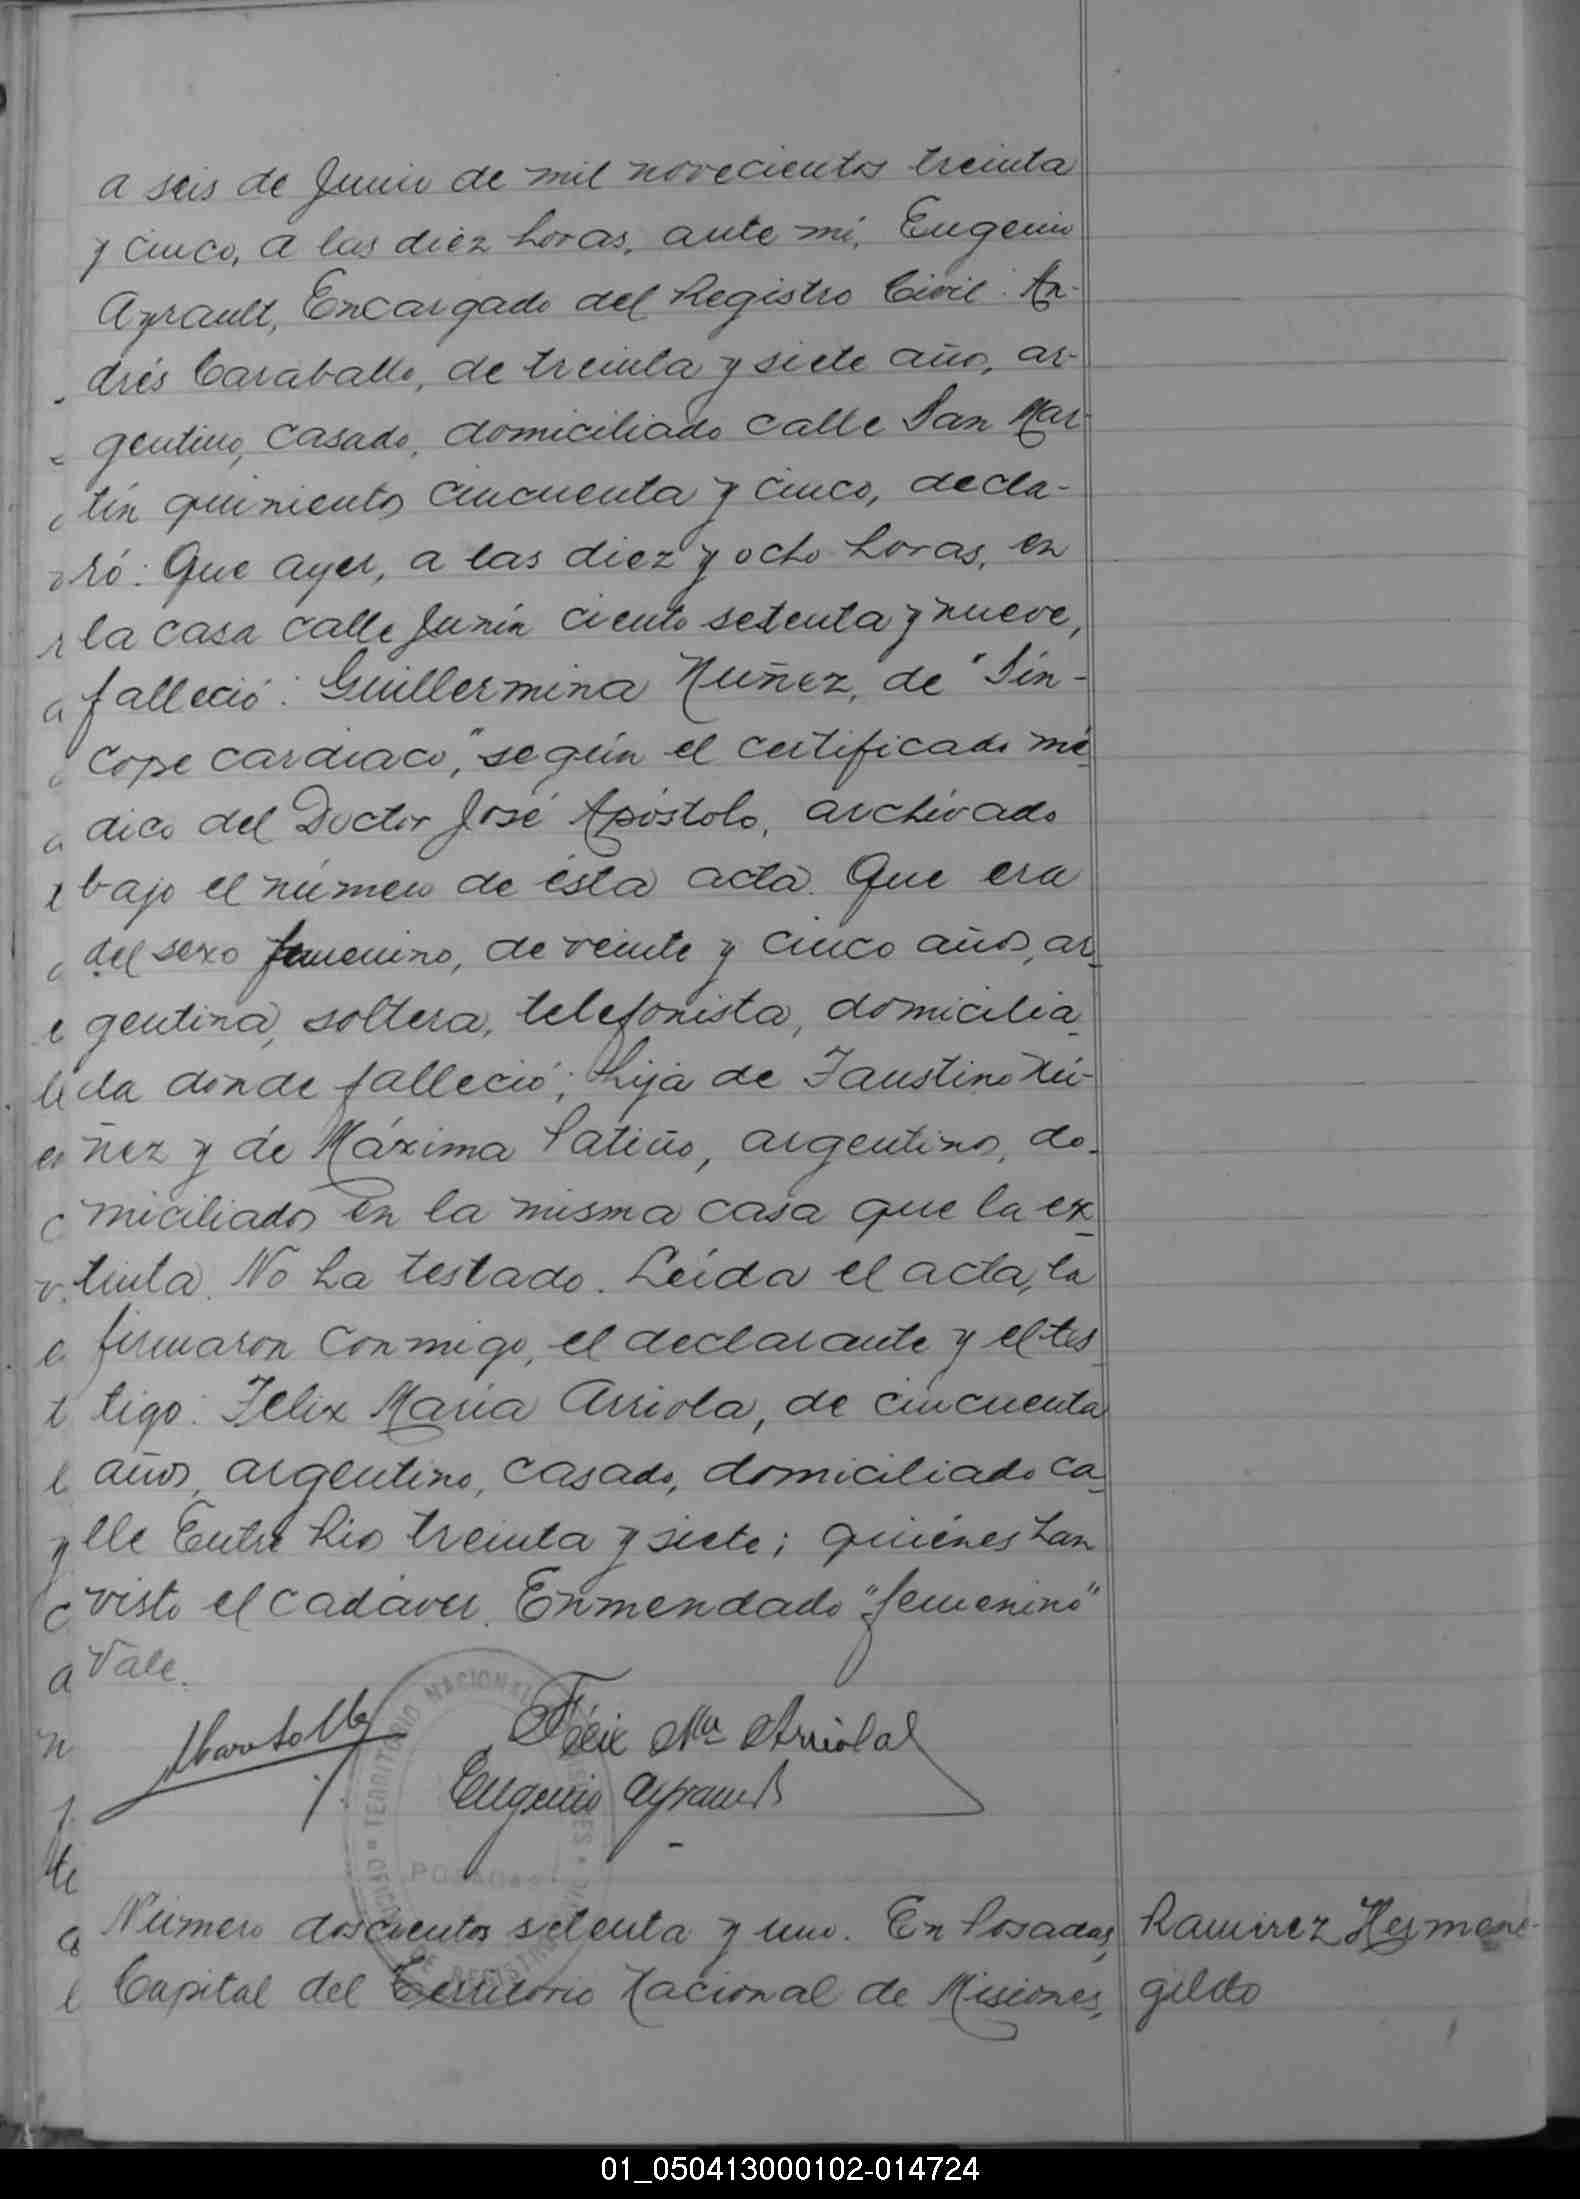 a seis de Junio de mil novecientos treinta
y cinco, a las diez horas, ante mí, Eugenio
Ayrault, Encargado del Registro Civil: An-
drés Caraballo, de treinta y siete años, ar-
gentino, casado, domiciliado calle San Mar-
tín quinientos cincuenta y cinco, decla-
ró: Que ayer, a las diez y ocho horas, en
la casa calle Junín ciento setenta y nueve,
falleció: Guillermina Nuñez, de "Sín-
cope cardiaco", según el certificado mé-
dico del Doctor José Apóstolo, archivado
bajo el número de ésta acta. Que era
del sexo femenino, de veinte y cinco años, ar-
gentina, soltera, telefonista, domicilia-
da donde falleció; hija de Faustino Nú-
ñez y de Máxima Patiño, argentinos, do-
miciliados en la misma casa que la ex-
tinta. No ha testado. Leída el acta, la
firmaron conmigo, el declarante y el tes-
tigo: Felix María Arriola, de cincuenta
años, argentino, casado, domiciliado ca-
lle Entre Rios treinta y siete; quiénes han
visto el cadáver. Enmendado "femenino"
Vale.
Félix Ma Arriola
Eugenio Ayrault
TERRITORIO NACIONAL
POSADAS
Número doscientos setenta y uno. En Posadas,
Capital del Territorio Nacional de Misiones,
Ramirez Hermene-
gildo
01_050413000102-014724